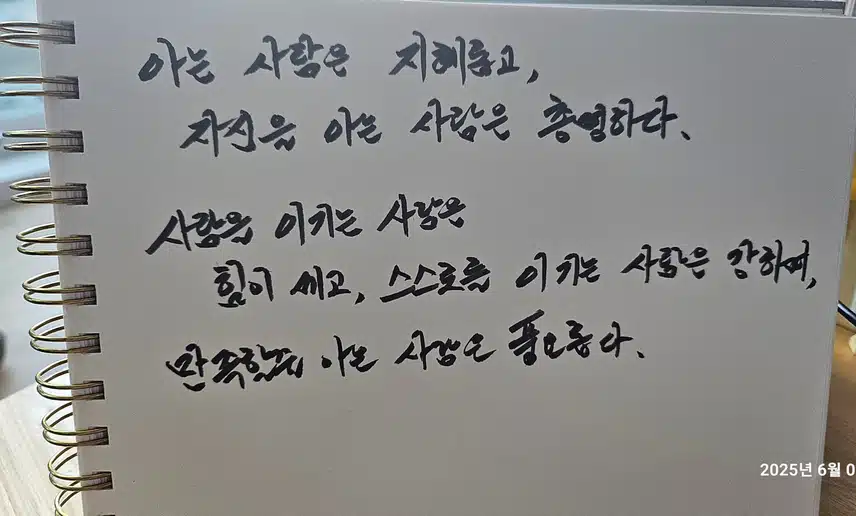 아는 사람은 지혜롭고,
자신을 아는 사람은 총명하다.
사람을 이기는 사람은
힘이 세고, 스스로를 이기는 사람은 강하며,
만족할줄 아는 사람은 풍요롭다.
2025년 6월 0